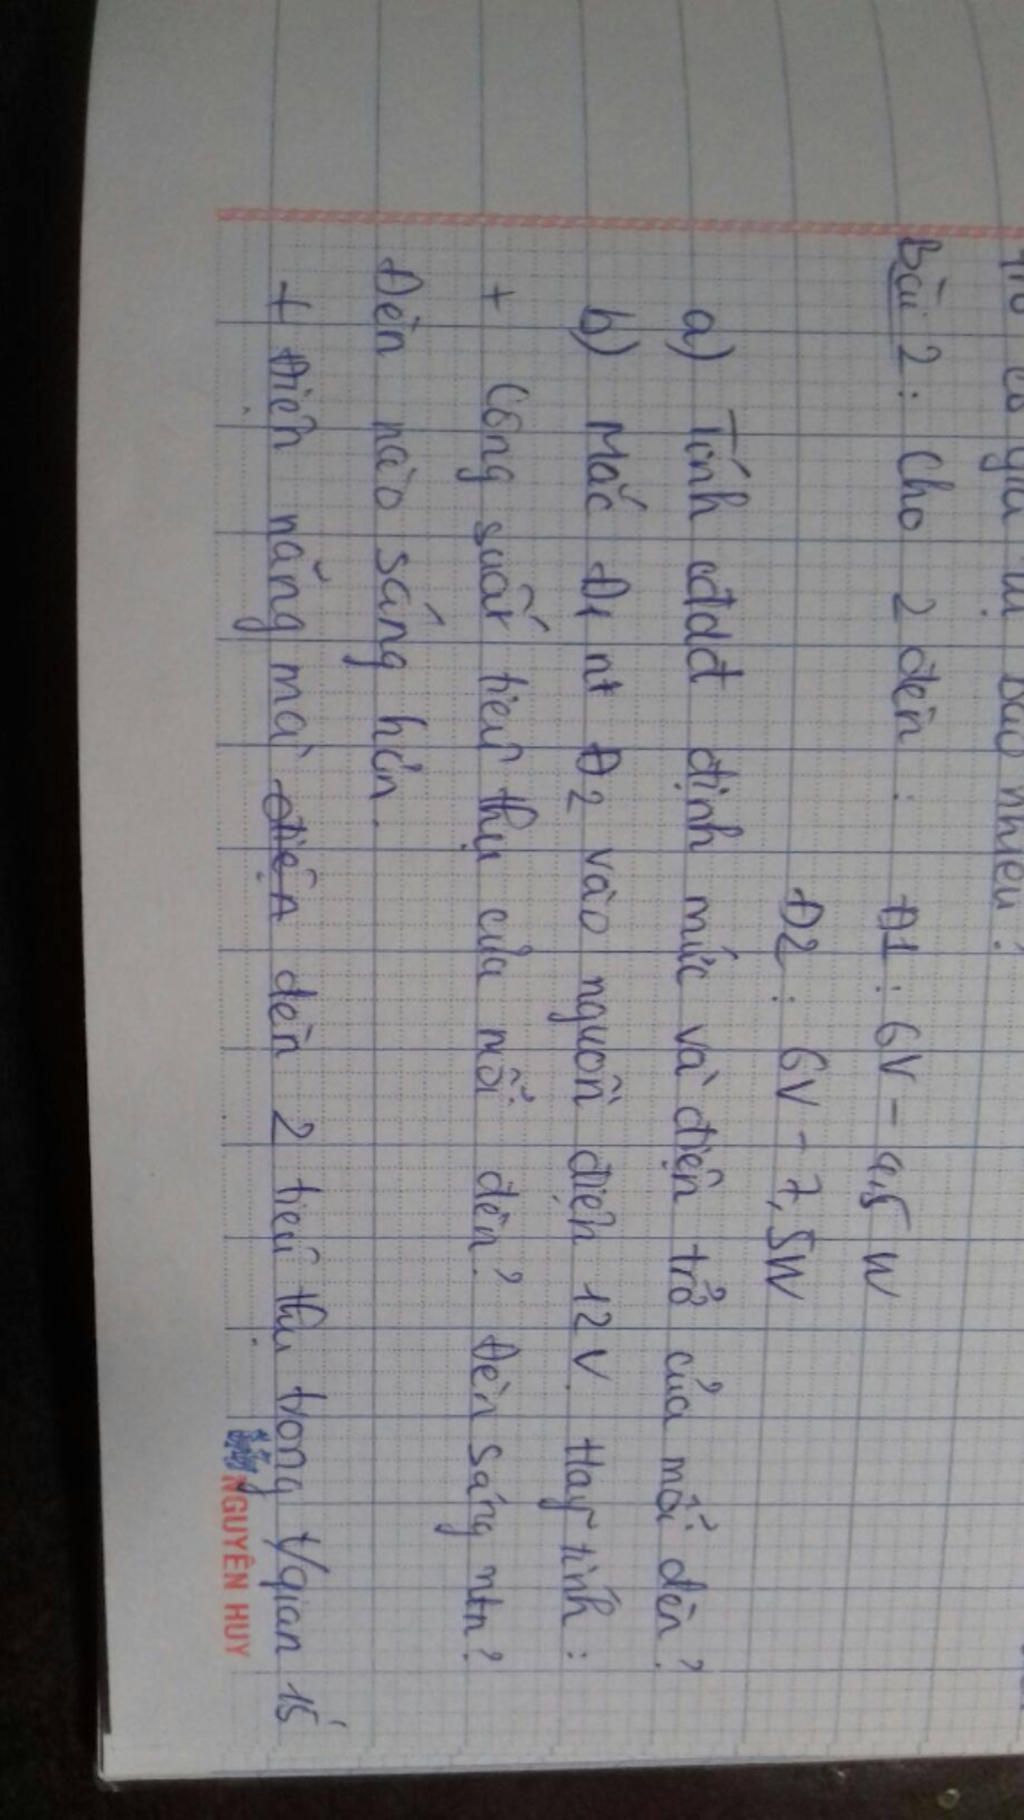 trở có giá trị bao nhiêu?
Bài 2: Cho 2 đèn: Đ1: 6V - 4,5 W
Đ2: 6V - 7,5W
a) Tính cđdđ định mức và điện trở của mỗi đèn?
b) Mắc Đ1 nt Đ2 vào nguồn điện 12V. Hãy tính:
+ Công suất tiêu thụ của mỗi đèn? Đèn sáng ntn?
Đèn nào sáng hơn.
+ Điện năng mà điện đèn 2 tiêu thụ trong t/gian 15'
NGUYÊN HUY